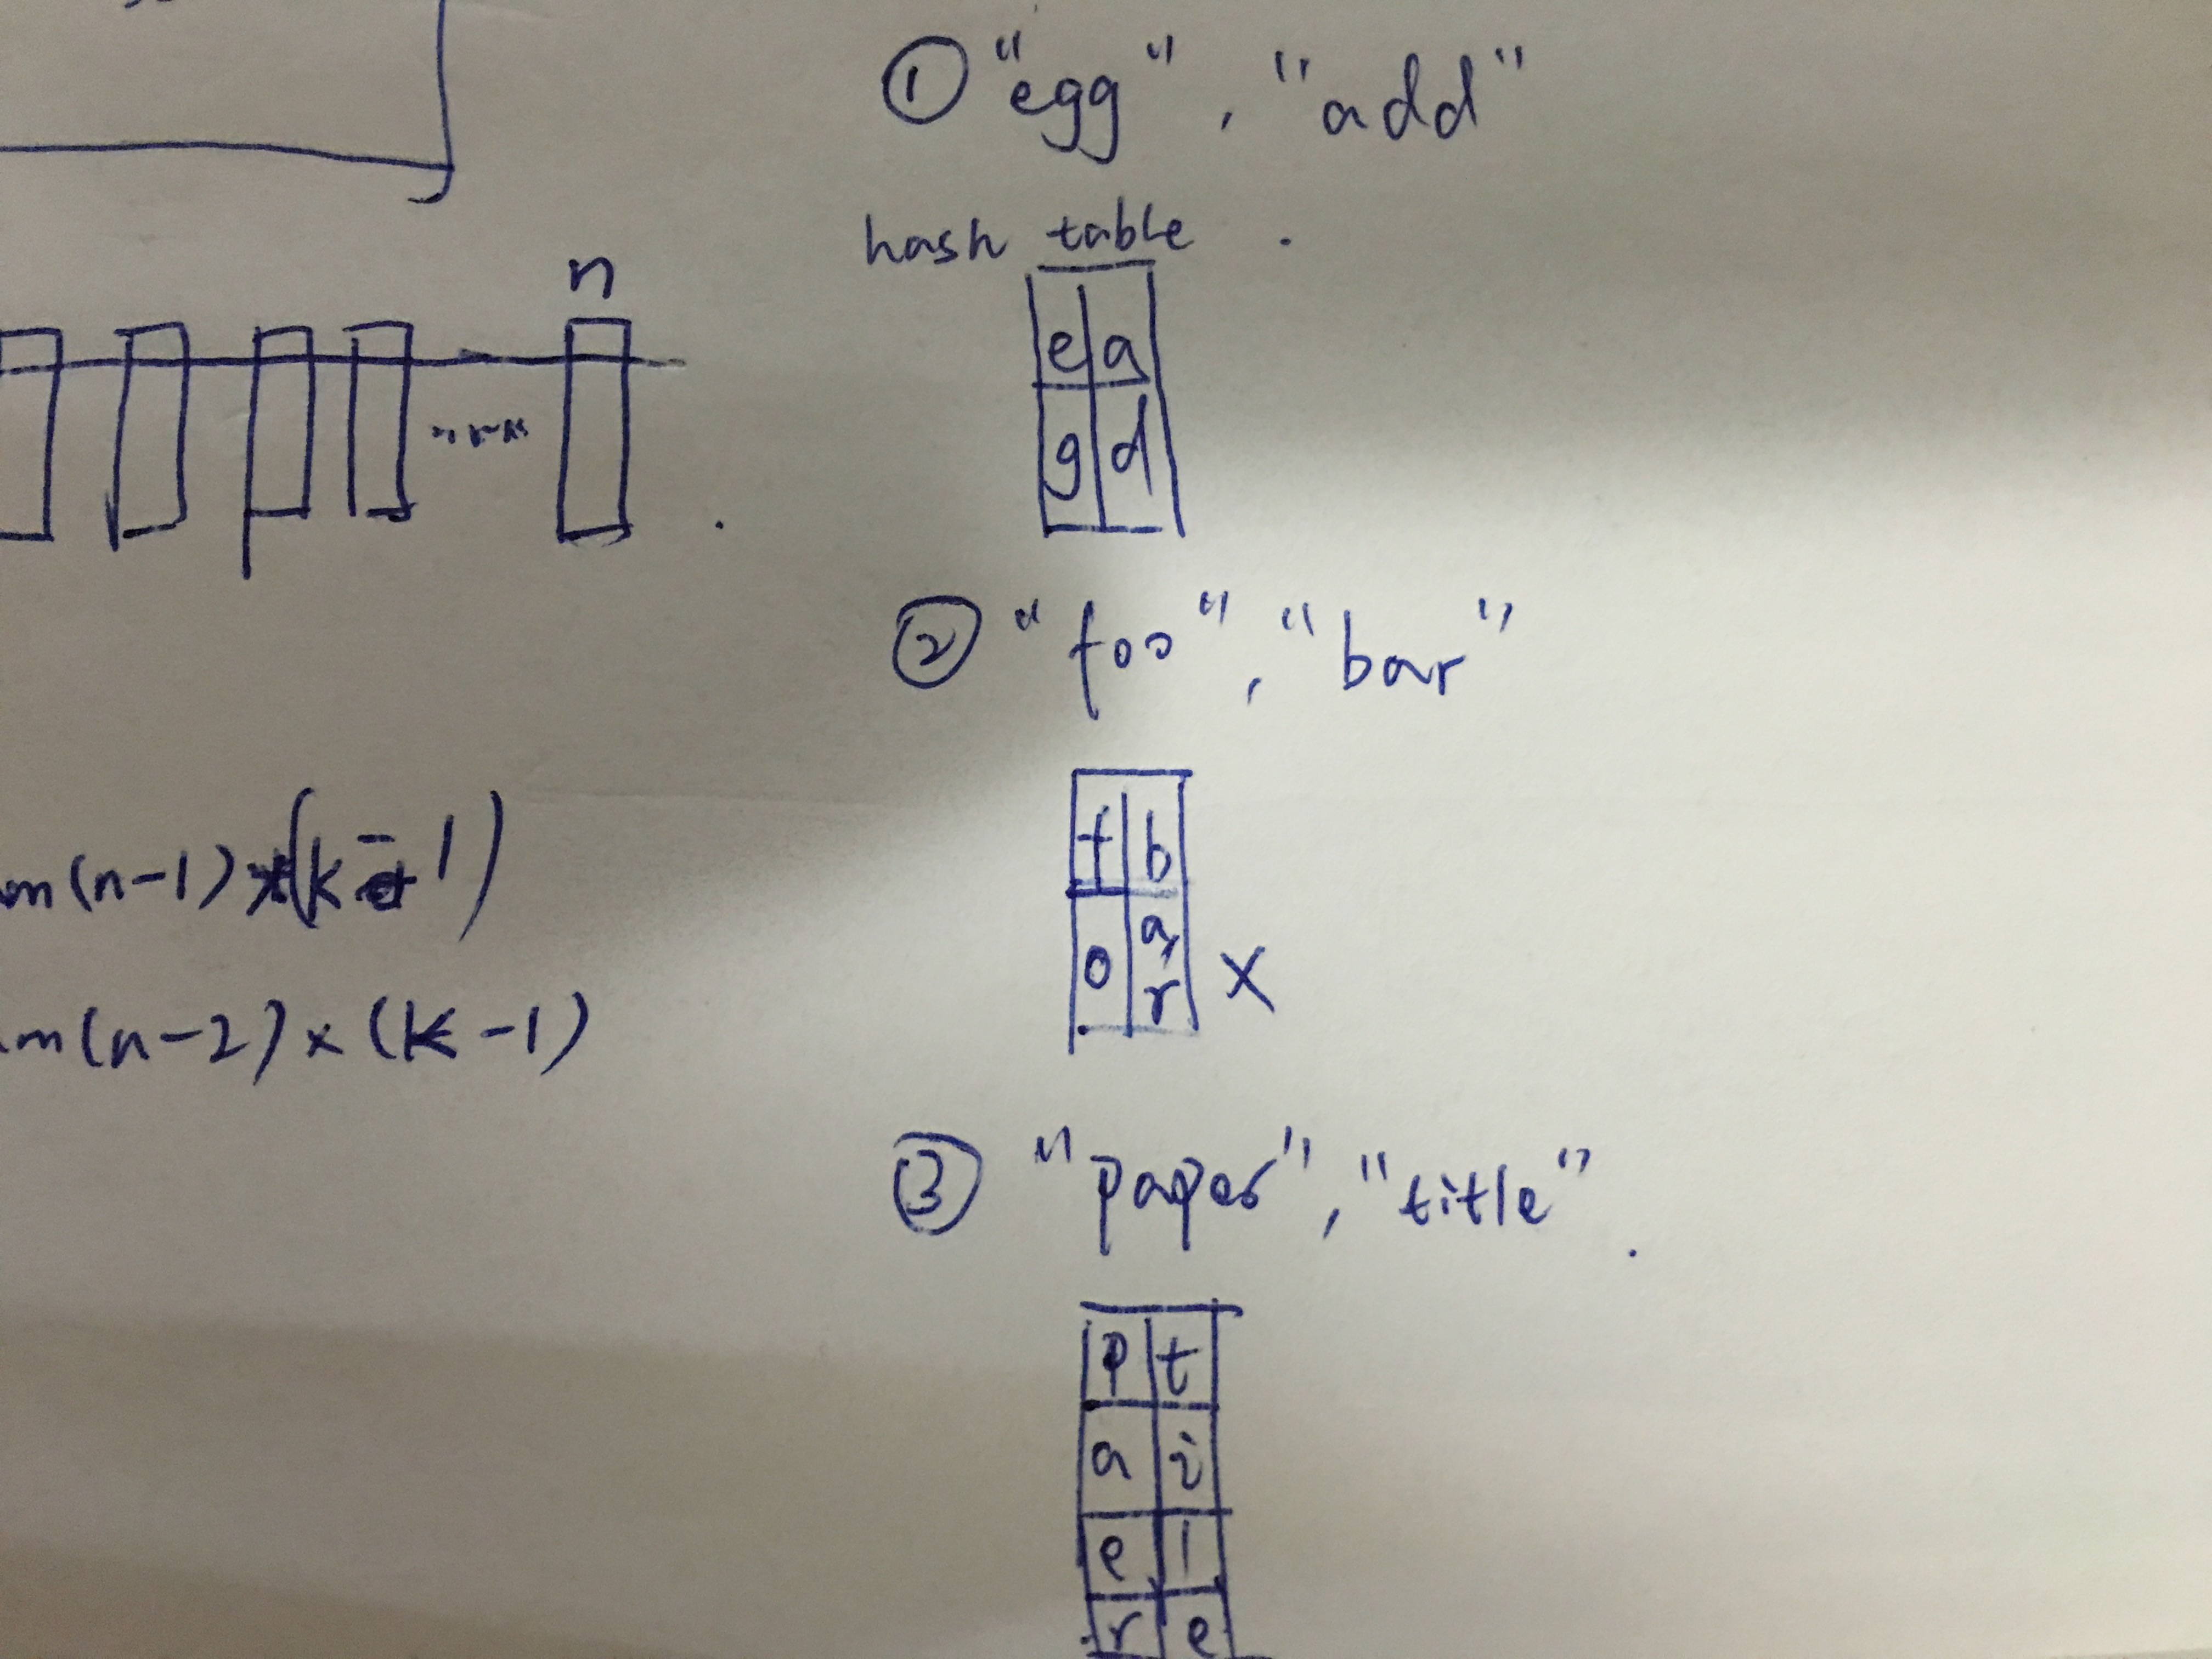 n
num(n-1)*(k-1)
num(n-2)*(k-1)
① "egg", "add"
hash table.
e a
g d
② "foo", "bar"
f b
o a r
X
③ "paper", "title".
p t
a i
e l
r e